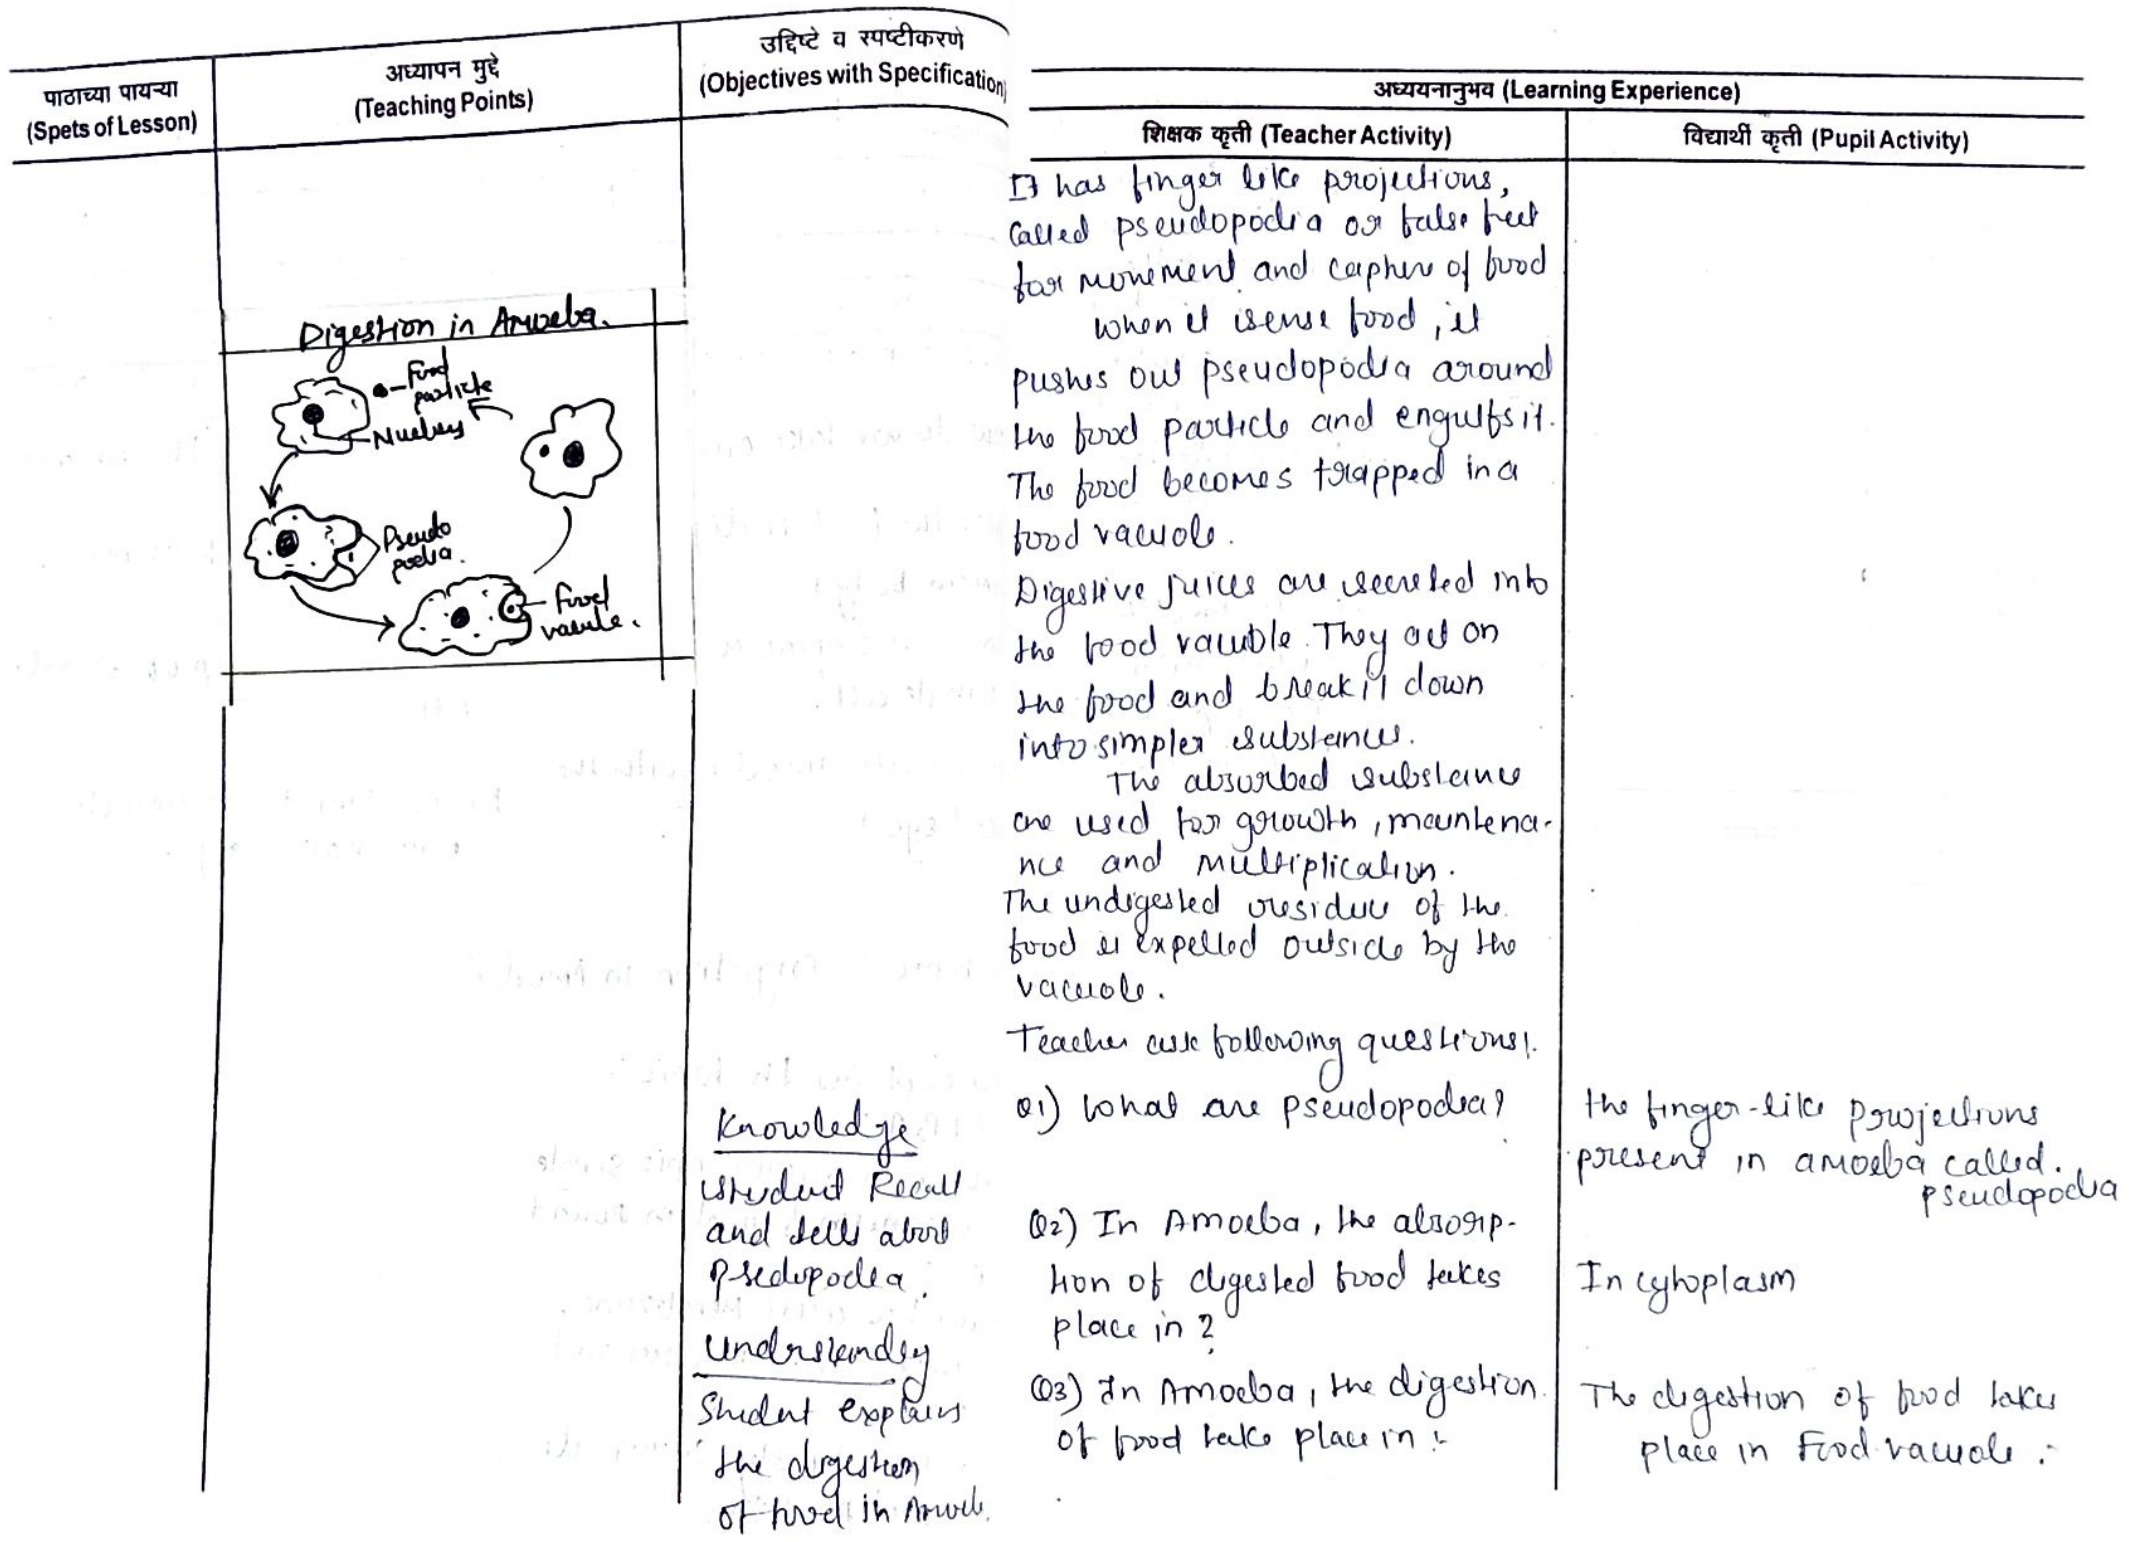 पाठाच्या पायऱ्या
(Spets of Lesson)
अध्यापन मुद्दे
(Teaching Points)
उद्दिष्टे व स्पष्टीकरणे
(Objectives with Specification)
अध्ययनानुभव (Learning Experience)
शिक्षक कृती (Teacher Activity)
विद्यार्थी कृती (Pupil Activity)
Digestion in Amoeba.
Food
particle
Nucleus
Pseudo
podia.
Food
vacule.
Knowledge
Student Recall
and tells about
Psedopodia.
Understanding
Student explains
the digestion
of food in Amoeb.
It has finger like projections,
Called pseudopodia or false feet
for movement and capture of food
When it sense food, it
pushes out pseudopodia around
the food particle and engulfs it.
The food becomes trapped in a
food vacuole.
Digestive juices are secreted into
the food vacuole. They act on
the food and break it down
into simpler substances.
The absorbed substance
are used for growth, maintena-
nce and multiplication.
The undigested residue of the
food is expelled outside by the
vacuole.
Teacher ask following questions!.
Q1) What are pseudopodia?
Q2) In Amoeba, the absorp-
tion of digested food takes
place in?
Q3) In Amoeba, the digestion
of food take place in :-
the finger-like projections
present in amoeba called.
pseudopodia
In cytoplasm
The digestion of food takes
place in Food vacuole :-